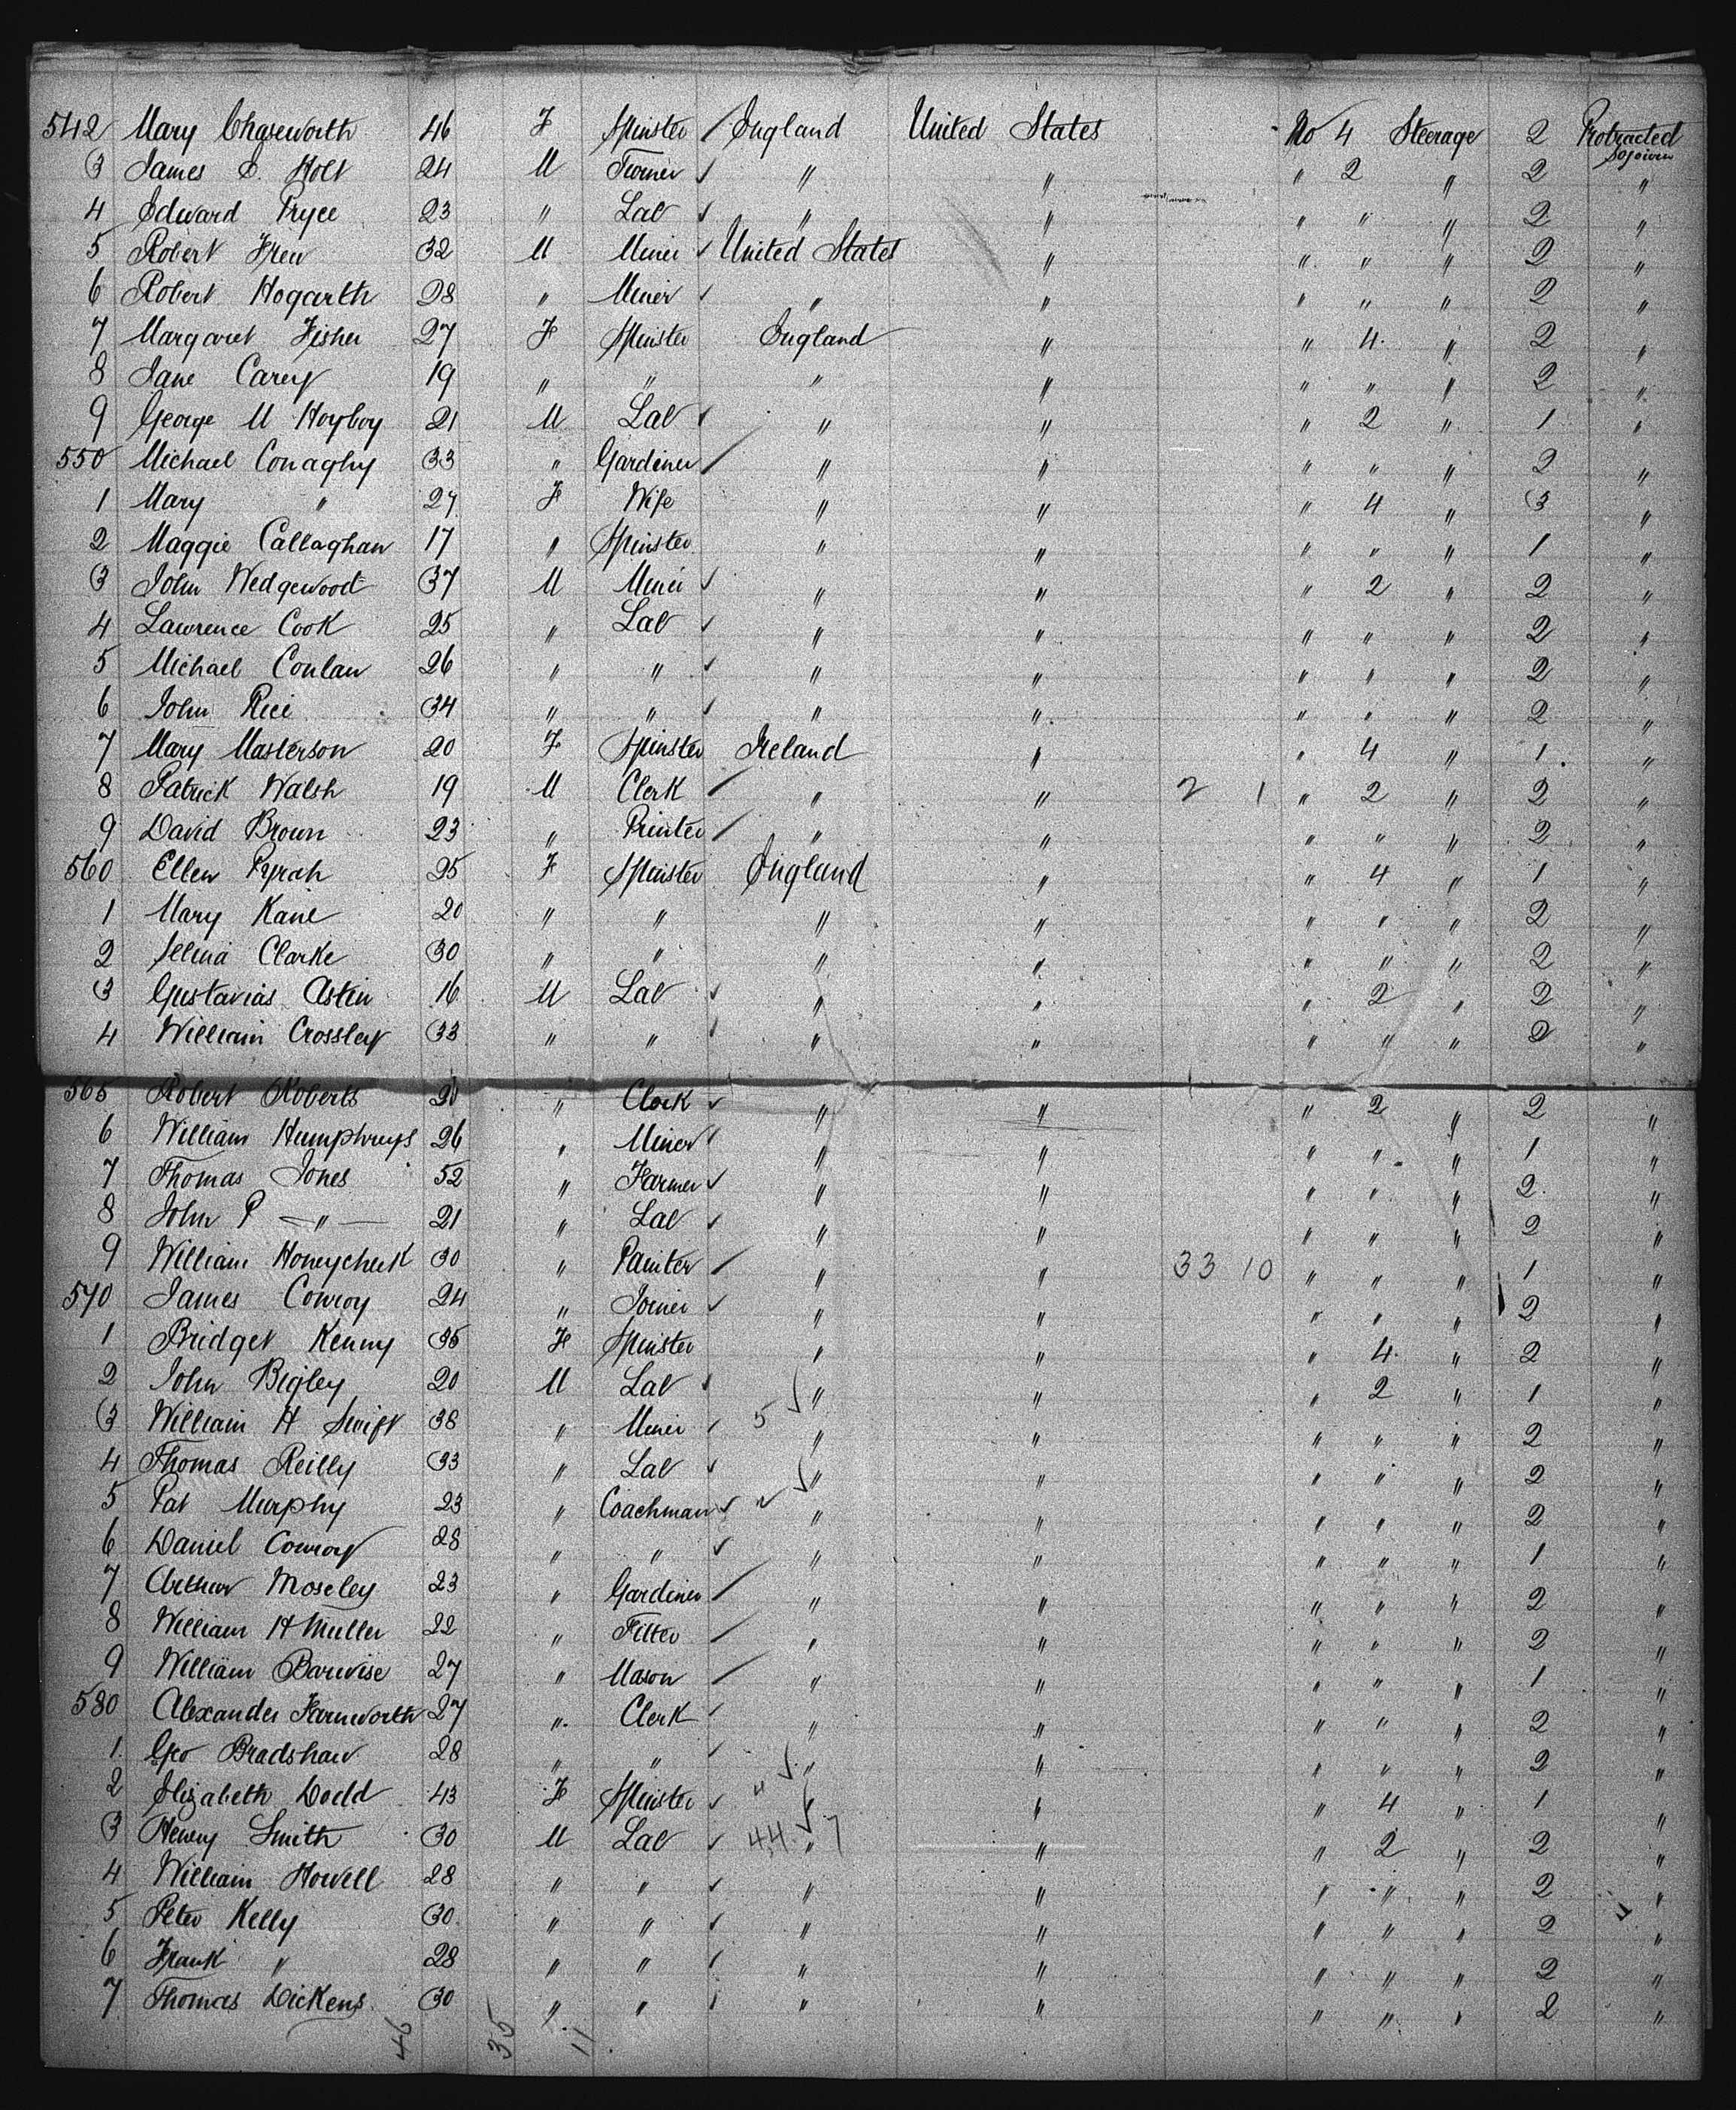 542 Mary Chaseworth 46 F Spinster / England United States No 4 Steerage 2 Protracted
sojourn
3 James E. Holt 24 M Turner ✓ " " " 2 " 2 "
4 Edward Pryce 23 " Lab ✓ " " " " " 2 "
5 Robert Frew 32 M Miner ✓ United States " " " " 2 "
6 Robert Hogarth 28 " Miner ✓ " " " " " 2 "
7 Margaret Fisher 27 F Spinster England " " 4 " 2 "
8 Jane Carey 19 " " " " " " " 2 "
9 George M Hoyboy 21 M Lab ✓ " " " 2 " 1 "
550 Michael Conaghy 33 " Gardiner / " " " " " 2 "
1 Mary " 27 F Wife " " " 4 " 3 "
2 Maggie Callaghan 17 " Spinster " " " " " 1 "
3 John Wedgewood 37 M Miner ✓ " " " 2 " 2 "
4 Lawrence Cook 25 " Lab ✓ " " " " " 2 "
5 Michael Conlan 26 " " ✓ " " " " " 2 "
6 John Rice 34 " " ✓ " " " " " 2 "
7 Mary Masterson 20 F Spinster Ireland " " 4 " 1 "
8 Patrick Walsh 19 M Clerk / " " 2 1 " 2 " 2 "
9 David Brown 23 " Printer / " " " " " 2 "
560 Ellen Pyrah 25 F Spinster England " " 4 " 1 "
1 Mary Kane 20 " " " " " " " 2 "
2 Selina Clarke 30 " " " " " " " 2 "
3 Gustavias Astin 16 M Lab ✓ " " " 2 " 2 "
4 William Crossley 33 " " ✓ " " " " " 2 "
565 Robert Roberts 20 " Clerk ✓ " " " 2 " 2 "
6 William Humphreys 26 " Miner ✓ " " " " " 1 "
7 Thomas Jones 52 " Farmer ✓ " " " " " 2 "
8 John P — " — 21 " Lab ✓ " " " " " 2 "
9 William Honeychurk 30 " Painter / " " 33 10 " " " 1 "
570 James Conroy 24 " Joiner ✓ " " " " " 2 "
1 Bridget Kenny 35 F Spinster " " " 4 " 2 "
2 John Bigley 20 M Lab ✓ ✓ " " " 2 " 1 "
3 William H Swift 38 " Miner ✓ 5 " " " " " 2 "
4 Thomas Reilly 33 " Lab ✓ " " " " " 2 "
5 Pat Murphy 23 " Coachman ✓ ✓ " " " " " 2 "
6 Daniel Conroy 28 " " ✓ " " " " " 1 "
7 Arthur Moseley 23 " Gardiner / " " " " " 2 "
8 William H Muller 22 " Fitter / " " " " " 2 "
9 William Barwise 27 " Mason / " " " " " 1 "
580 Alexander Farnworth 27 " Clerk ✓ " " " " " 2 "
1 Geo Bradshaw 28 " " ✓ ✓ " " " " " 2 "
2 Elizabeth Dodd 43 F Spinster ✓ " " " 4 " 1 "
3 Henry Smith 30 M Lab ✓ 44 ✓ 7 " " " 2 " 2 "
4 William Howell 28 " " ✓ " " " " " 2 "
5 Peter Kelly 30 " " ✓ " " " " " 2 "
6 Frank " 28 " " ✓ " " " " " 2 "
7 Thomas Dickens 30 " " ✓ " " " " " 2 "
46 35 11